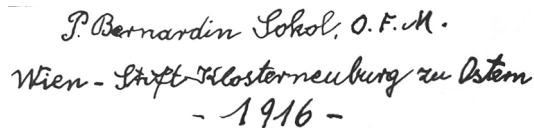 P. Bernardin Sokol, O.F.M.
Wien - Stift Klosterneuburg zu Ostern
- 1916 -